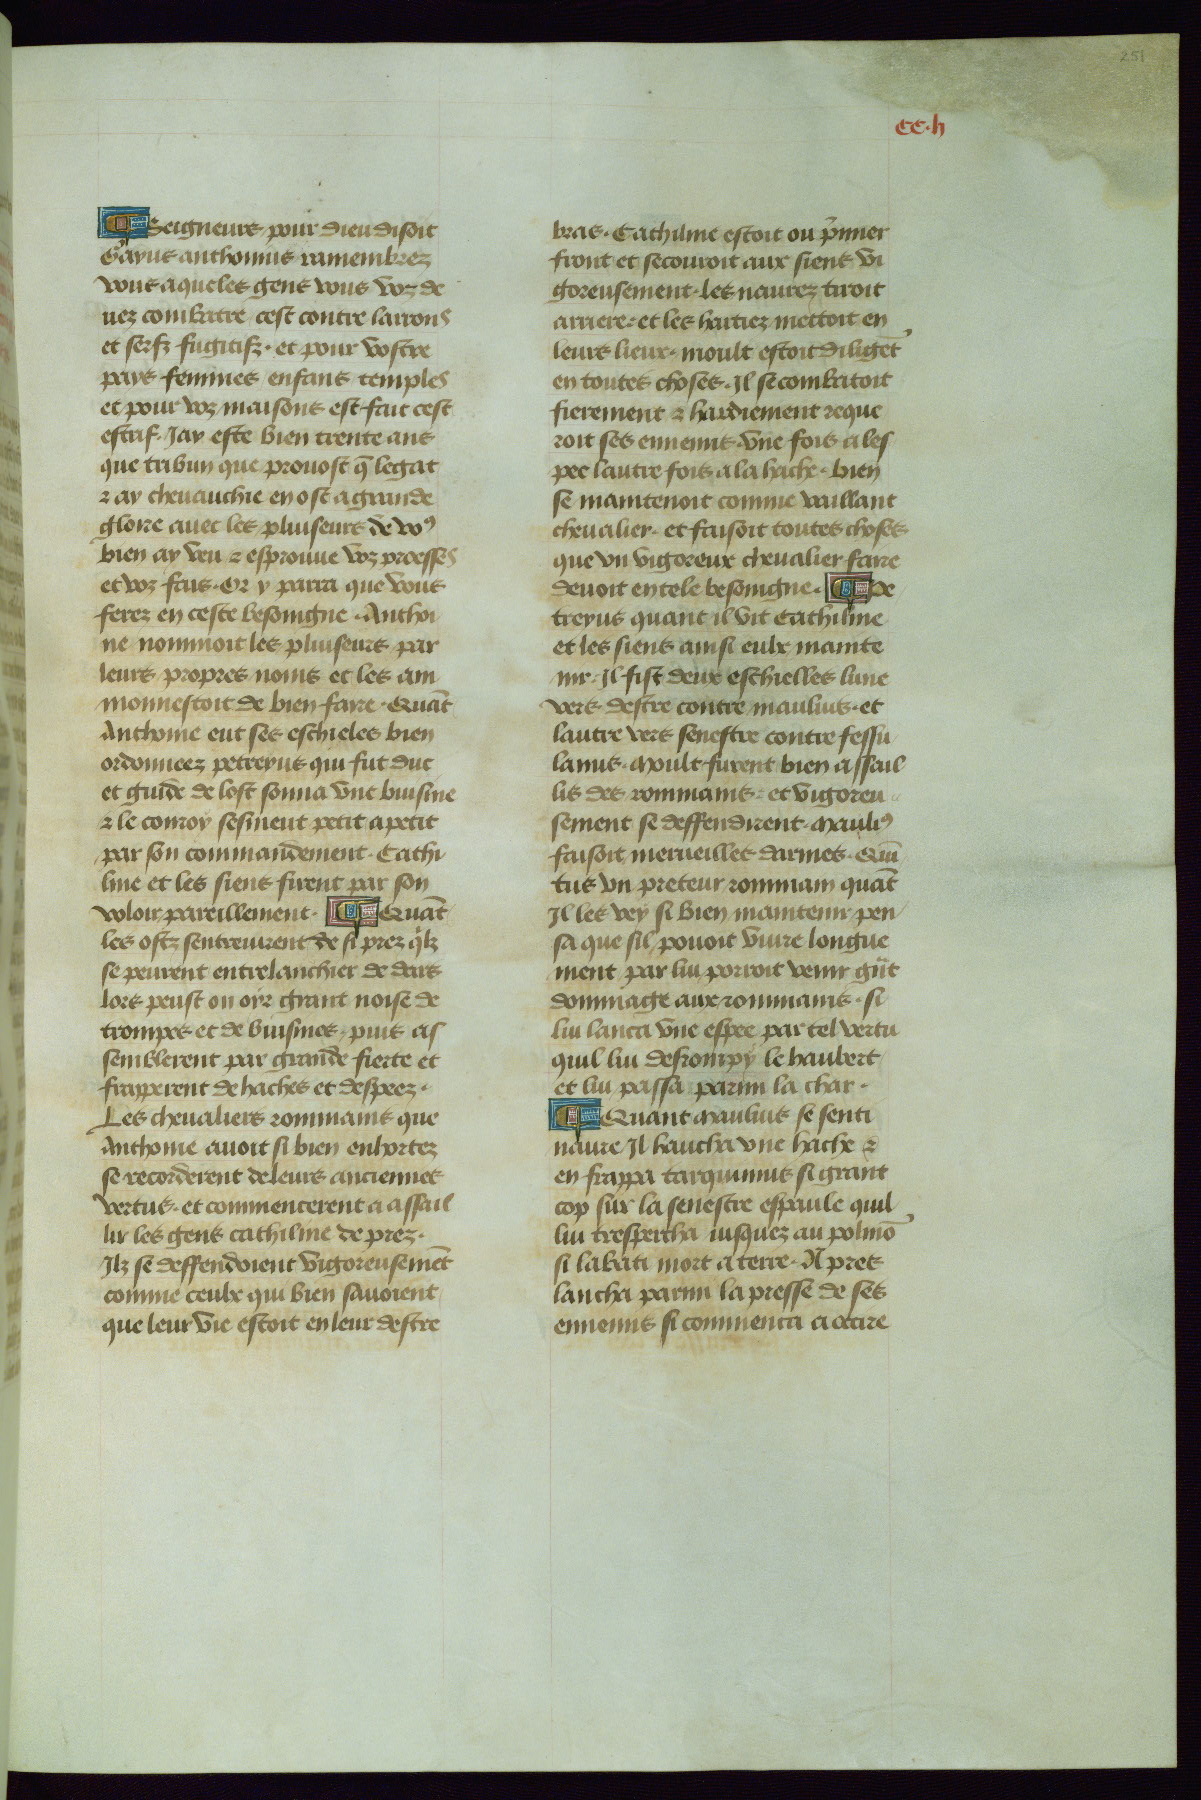 251
CC.li
¶ Seigneurs pour dieu disoit
Gayus anthonius ramembrez
vous aqueles gens vous voz de
uez combatre cest contre larrons
et serfz fugitifz. et pour vostre
pays femmes enfans temples
et pour voz maisons est fait cest
estrif. Jay este bien trente ans
que tribun que prouost q̄ legat
⁊ ay cheuauchie en ost a grande
gloire auec les pluiseurs de voꝰ
bien ay veu ⁊ esprouue voz proesses
et voz fais. Or y parra que vous
ferez en ceste besoingne. Anthoi
ne nommoit les pluiseurs par
leurs propres noms et les am
monnestoit de bien faire. Quāt
Anthoine eut ses eschieles bien
ordonneez petreyus qui fut duc
et guide de lost sonna vne buisine
⁊ le conroy sesmeut petit a petit
par son commandement. Cathi
line et les siens firent par son
voloir pareillement. ¶ Quāt
les ostz sentreuirent de si prez qͥlz
se peurent entrelanchier de dars
lors peust on oyr grant noise de
trompes et de buisines. puis as
semblerent par grande fierte et
frapperent de haches et despeez.
Les cheualiers rommains que
Anthoine auoit si bien enhortez
se recorderent de leurs anciennes
vertus. et commencerent a assail
lir les gens cathiline de prez.
Ilz se deffendoient vigoreusemēt
comme ceulx qui bien sauoient
que leur vie estoit en leur destre
bras. Cathiline estoit ou p̄mier
front et secouroit aux siens vi
goreusement. les naurez tiroit
arriere. et les haitiez mettoit en
leurs lieux. moult estoit diligēt
en toutes choses. Il se combatoit
fierement ⁊ hardiement reque
roit ses ennemis. vne fois a les
pee lautre fois a la hache. bien
se maintenoit comme vaillant
cheualier. et faisoit toutes choses
que vn vigoreux cheualier faire
deuoit en tele besoingne. ¶ Pe
treyus quant il vit Cathiline
et les siens ainsi eulx mainte
nir. Il fist deux eschielles lune
vers destre contre maulius. et
lautre vers senestre contre fessu
lanus. Moult furent bien assail
lis des rommains. et vigoreu
sement se deffendirent. Mauliꝰ
faisoit merueilles darmes. Quī
tus vn preteur rommain quāt
Il les vey si bien maintenir pen
sa que sil pouoit viure longue
ment par lui porroit venir grāt
dommage aux rommains. si
lui lanca vne espee par tel vertu
quil lui desrompy le haubert
et lui passa parmi la char.
¶ Quant Maulius se senti
naure Il haucha vne hache ⁊
en frappa tarquinius si grant
cop sur la senestre espaule quil
lui trespercha iusquez au polmō
si labati mort a terre. Aprés
lancha parmi la presse de ses
ennemis si commenca a occire